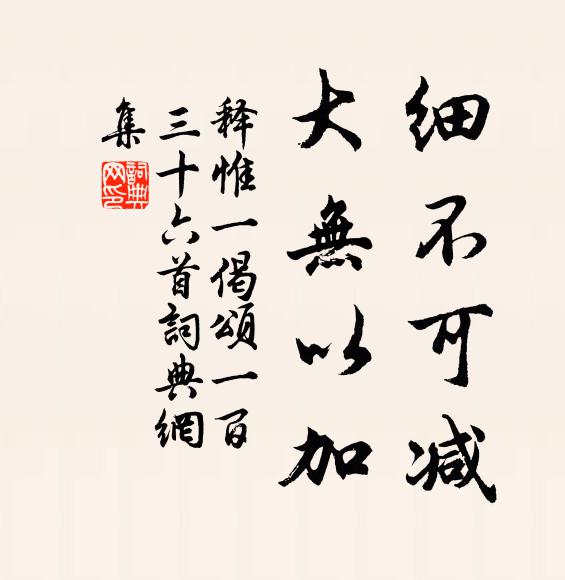 细不可减
大無以加
释惟一偈頌一百
三十六首詞典網
集
詞典
网印